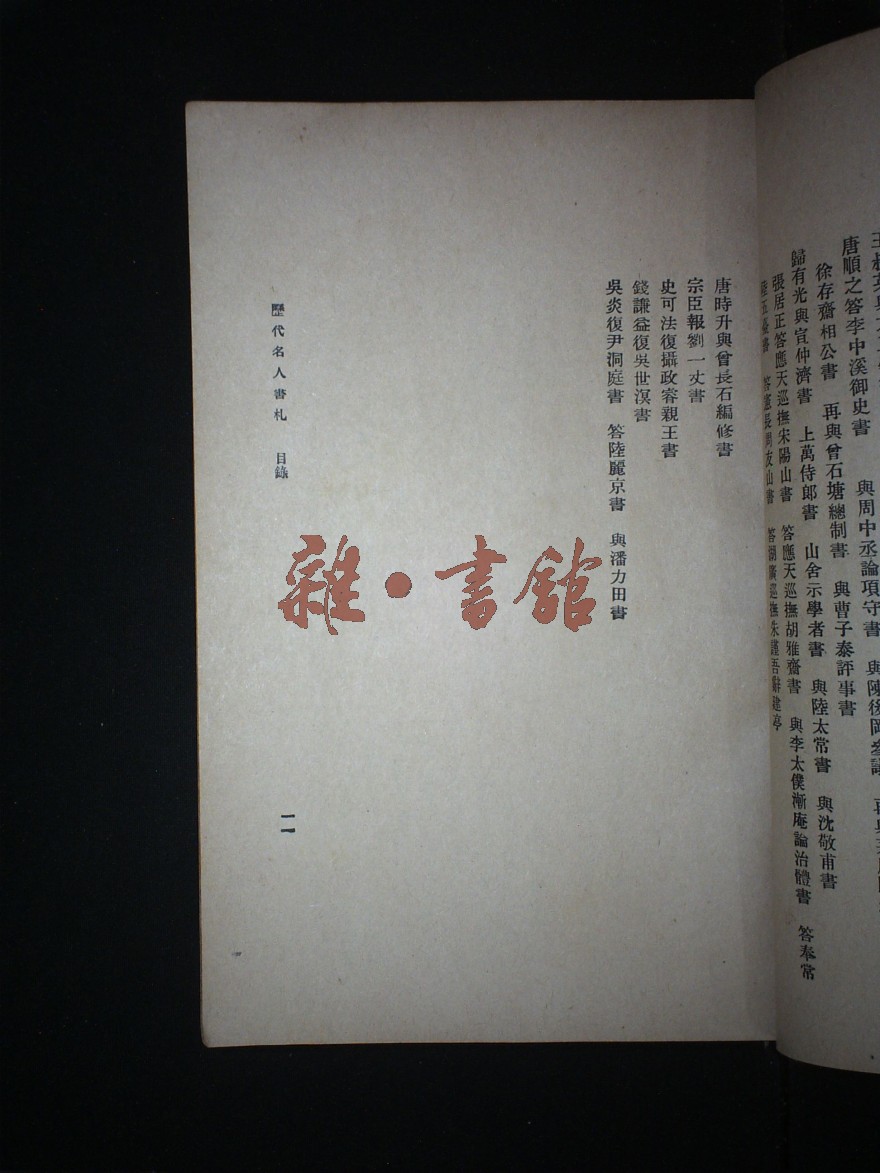 唐順之答李中溪御史書　與周中丞論項守書　與陳後岡參議
徐存齋相公書　再與曾石塘總制書　與曹子泰評事書
歸有光與宣仲濟書　上萬侍郎書　山舍示學者書　與陸太常書　與沈敬甫書
張居正答應天巡撫宋陽山書　答應天巡撫胡雅齋書　與李太僕漸庵論治體書　答奉常
陸五臺書　答憲長周友山書　答湖廣巡撫朱謹吾辭建亭
唐時升與曾長石編修書
宗臣報劉一丈書
史可法復攝政睿親王書
錢謙益復吳世溟書
吳炎復尹洞庭書　答陸麗京書　與潘力田書
歷代名人書札　目錄
一一
雜·書館